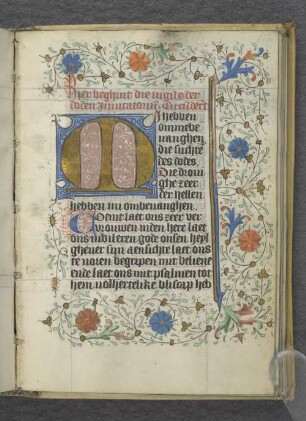 Hier beghint die vigilie der
doden Inuitatorium Circūdedert
i hebben
ommebe
uanghen
die suchtē
des dodes.
Die droui
ghe zeer
der hellen
hebben mi ombeuanghen.
Coemt laet ons zeer ver
vrouwen inden here laet
ons iubileren gode onsen heyl
gheuer sijn aensichte laet ons
te voren begripen mit belienē
ende laet ons mit psalmen tot
hem volhertelike blijscap heb